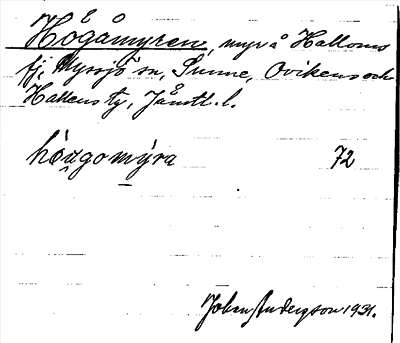 Högåmyren, myr å Halloms
fj, Myssjö sn, Sunne, Oviken och
Hallens tg, Jämtl. l.
hòugomýra 72
Johan Anderson 1931.